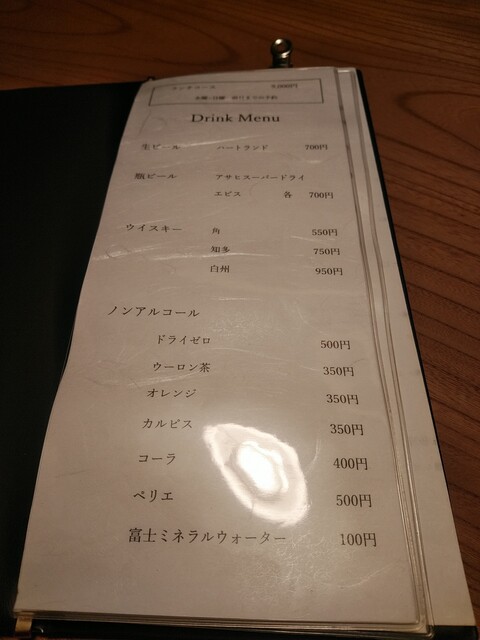 Drink Menu
生ビール ハートランド 700円
瓶ビール アサヒスーパードライ
エビス 各 700円
ウイスキー 角 550円
知多 750円
白州 950円
ノンアルコール
ドライゼロ 500円
ウーロン茶 350円
オレンジ 350円
カルピス 350円
コーラ 400円
ペリエ 500円
富士ミネラルウォーター 100円